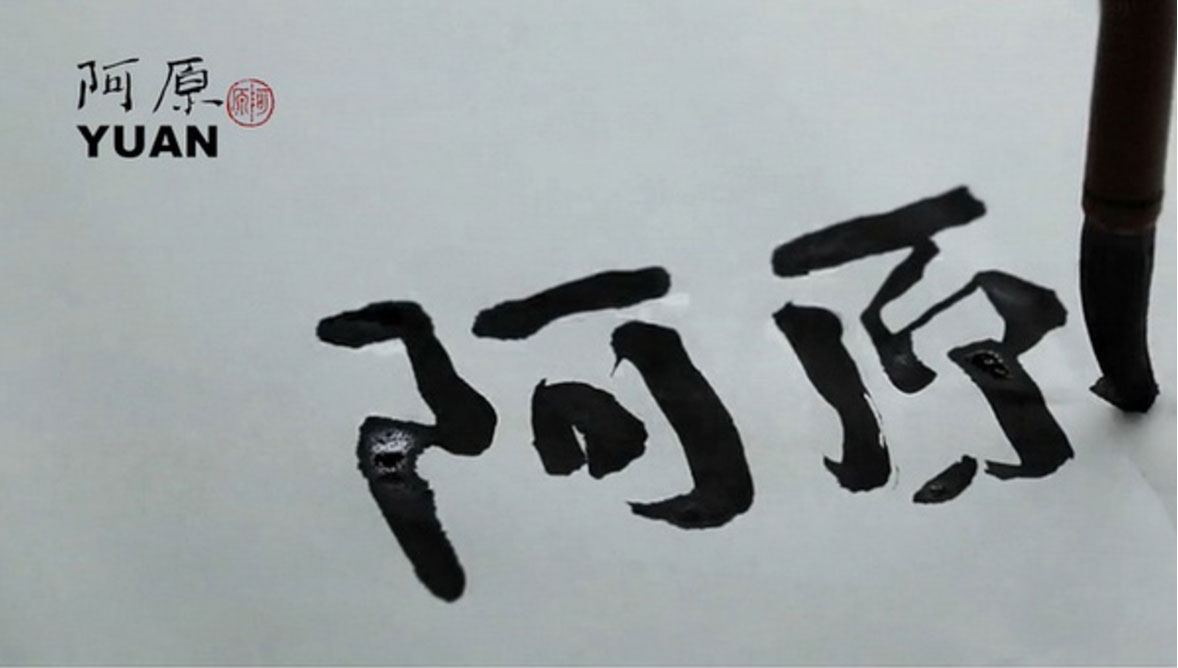 阿原
阿原
YUAN
阿原